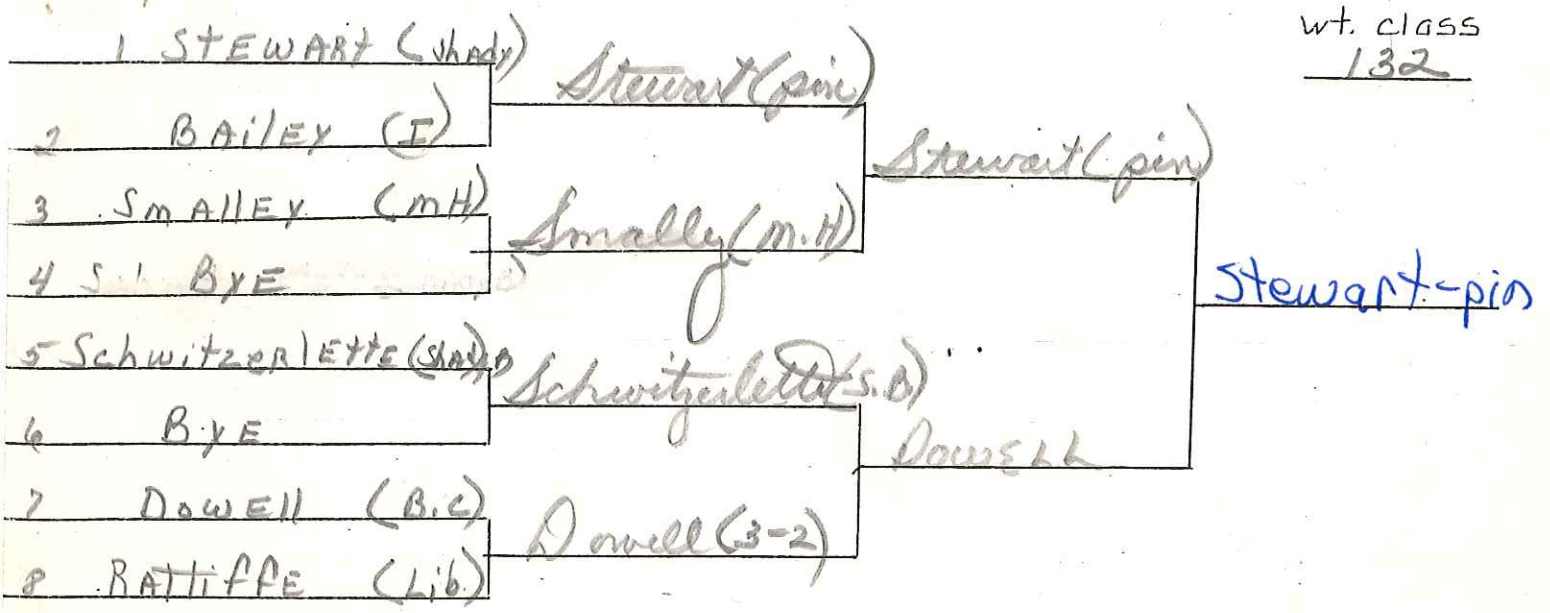 wt. class
132
1 STEWART (Shady)
2 BAILEY (I)
3 SMALLEY (MH)
4 BYE
5 Schwitzerlette (Shady B
6 BYE
7 DOWELL (B.C)
8 RATliffE (Lib.)
Stewart (pin)
Smally (M.H)
Schwitzerlette (S.B)
Dowell (3-2)
Stewart (pin)
DOWELL
Stewart-pin